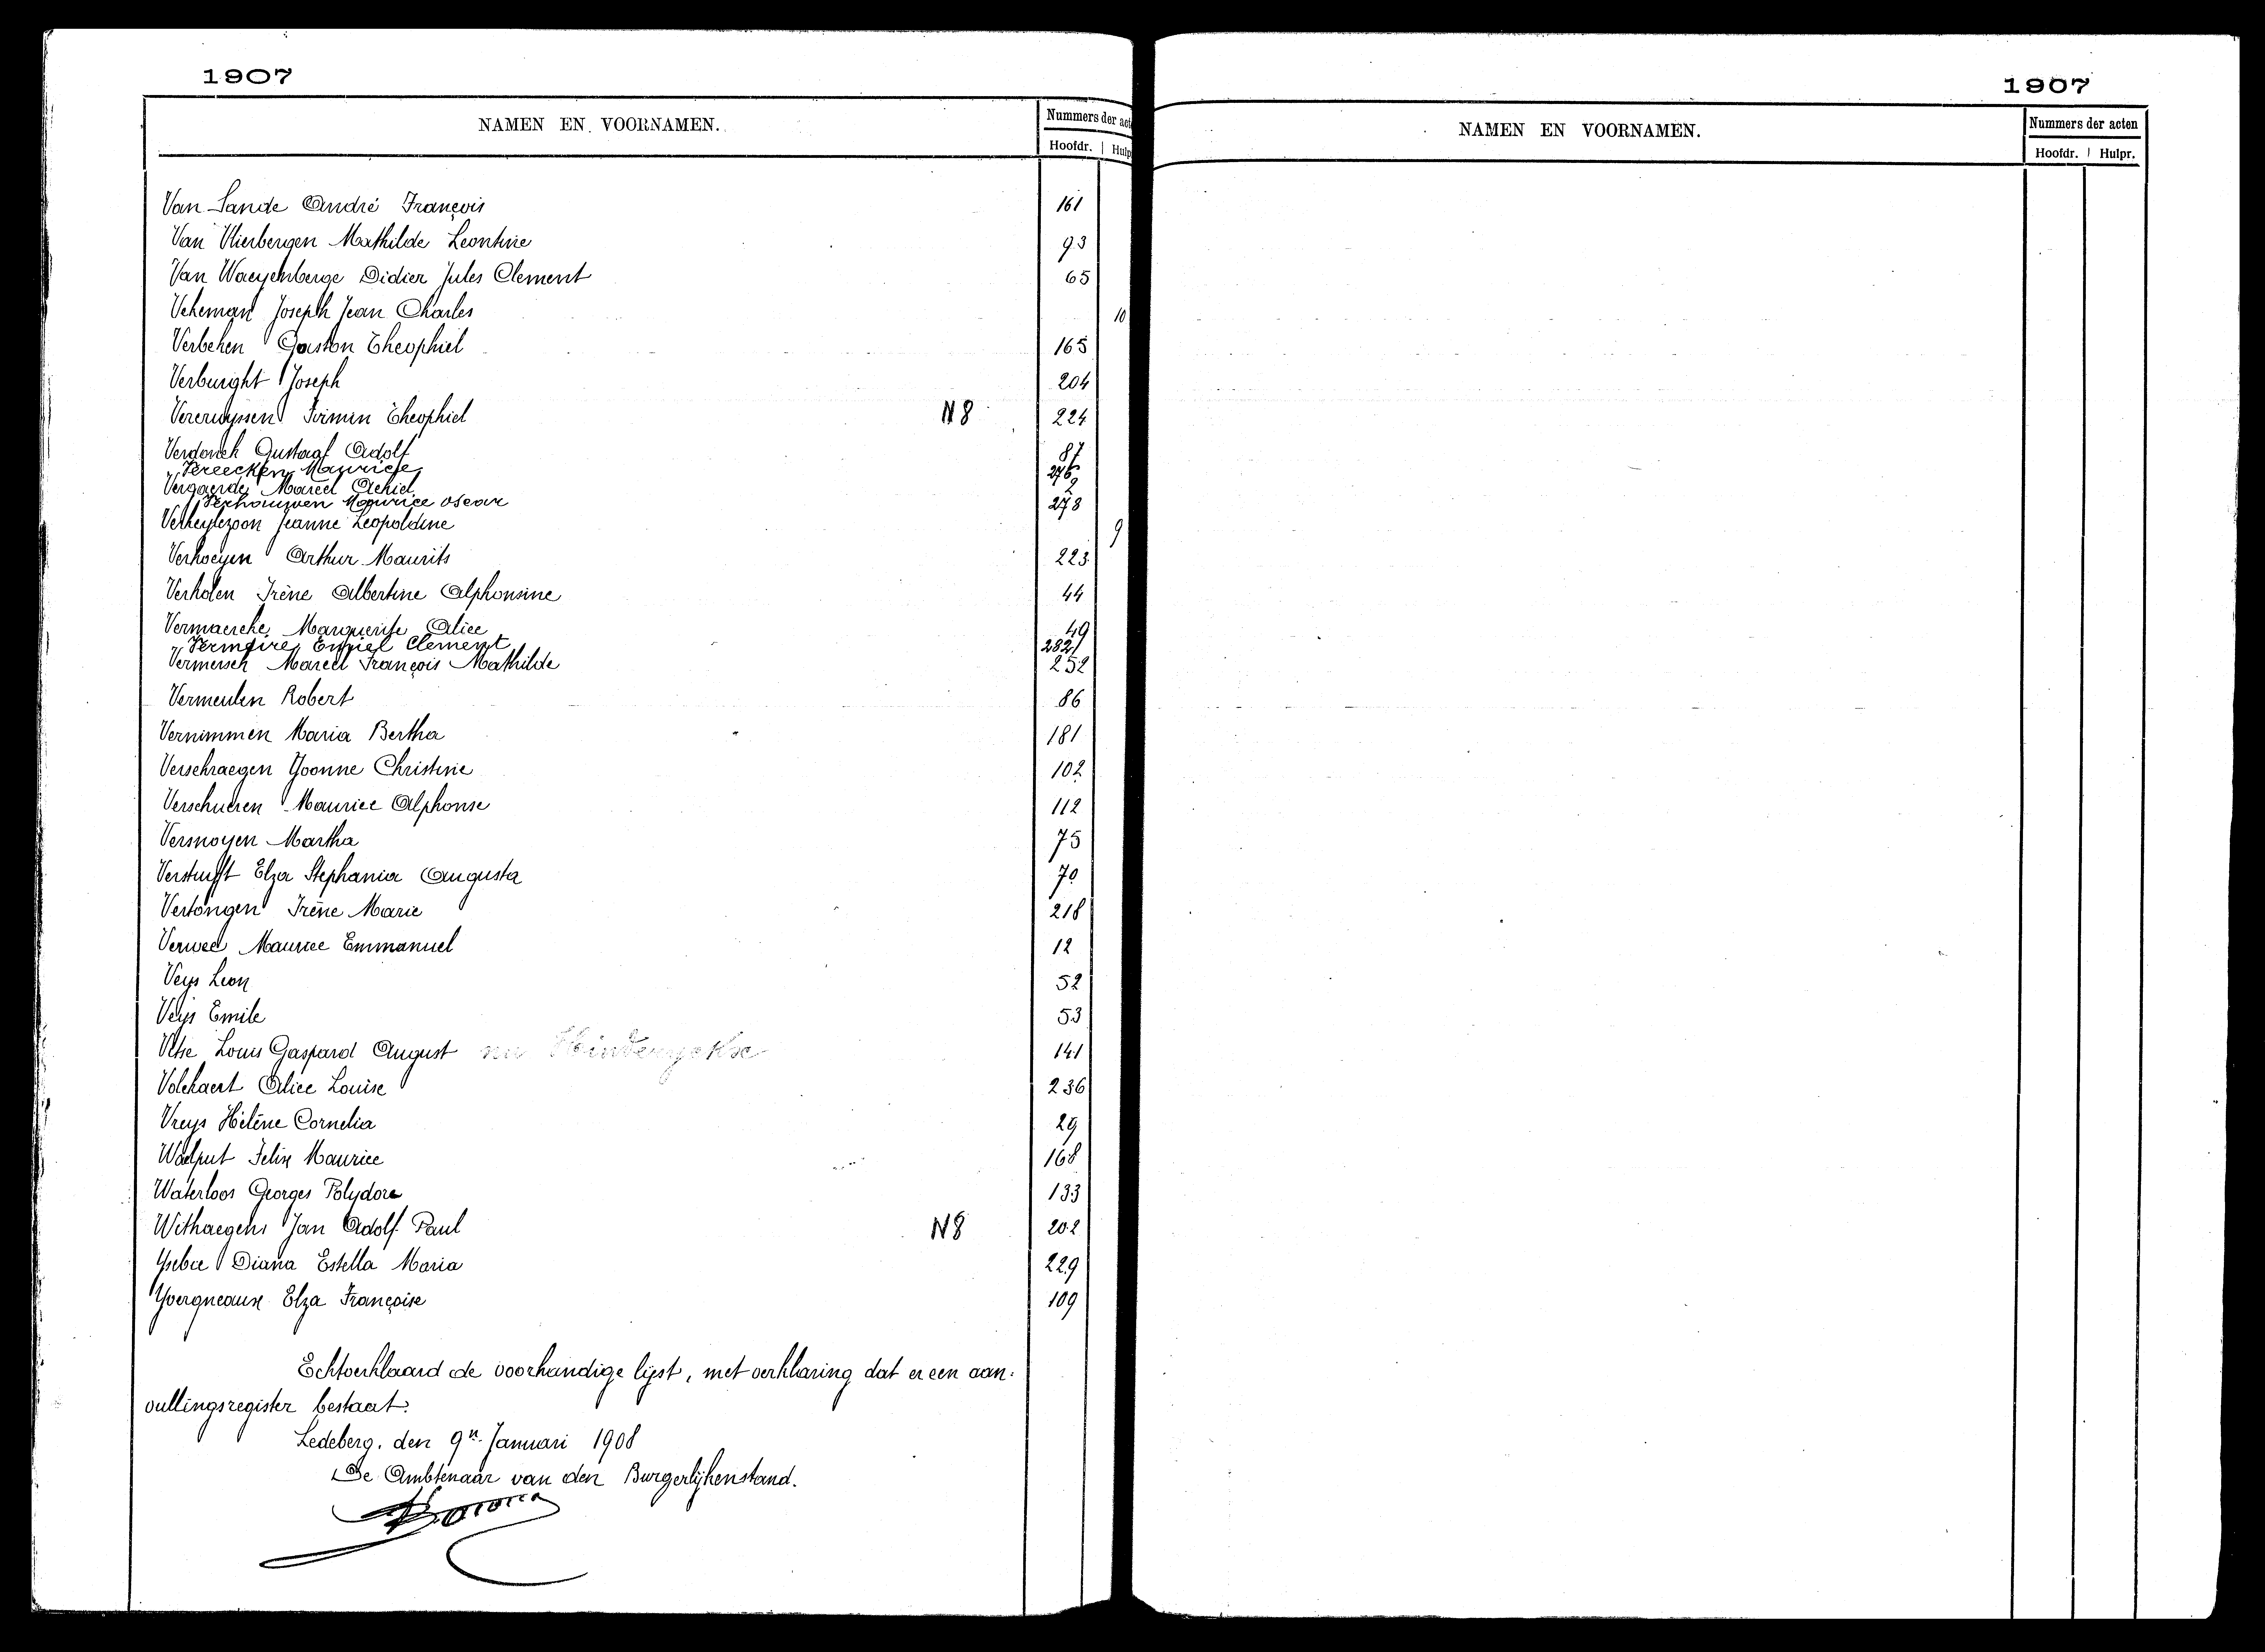 1907
NAMEN EN VOORNAMEN.
Nummers der act
Hoofdr. Hulp
Van Sande André François 161
Van Vlierbergen Mathilde Leontine 93
Van Waeyenberge Didier Jules Clement 65
Vekeman Joseph Jean Charles 10
Verbeken Gaston Theophiel 165
Verburght Joseph 204
Vercruyssen Firmin Theophiel N8 224
Verdonck Gustaaf Adolf 87
Vereecken Maurice 276
Vergaerde Marcel Achiel 2
Verhouwen Maurice oscar 278
Verheylezoon Jeanne Leopoldine 9
Verhoeyen Arthur Maurits 223
Verholen Irène Albertine Alphonsine 44
Vermaercke Marguerite Alice 49
Vermeire Emiel Clement 282
Vermersch Marcel François Mathilde 252
Vermeulen Robert 86
Vernimmen Maria Bertha 181
Verschraegen Yvonne Christine 102
Verschueren Maurice Alphonse 112
Versnoyen Martha 75
Verstuyft Elza Stephania Augusta 70
Vertongen Irène Marie 218
Verwee Maurice Emmanuel 12
Veys Leon 52
Veys Emile 53
Louis Gaspard August nu 141
Volckaert Alice Louise 236
Vreys Hélène Cornelia 29
Waelput Felix Maurice 168
Waterloos Georges Polydore 133
Withaegens Jan Adolf Paul N8 202
Ysebie Diana Estella Maria 229
Yvergneaux Elza Françoise 109
Echtverklaard de voorhandige lijst, met verklaring dat er een aan-
vullingsregister bestaat.
Ledeberg, den 9n Januari 1908
De Ambtenaar van den Burgerlijkenstand.
1907
NAMEN EN VOORNAMEN.
Nummers der acten
Hoofdr. Hulpr.